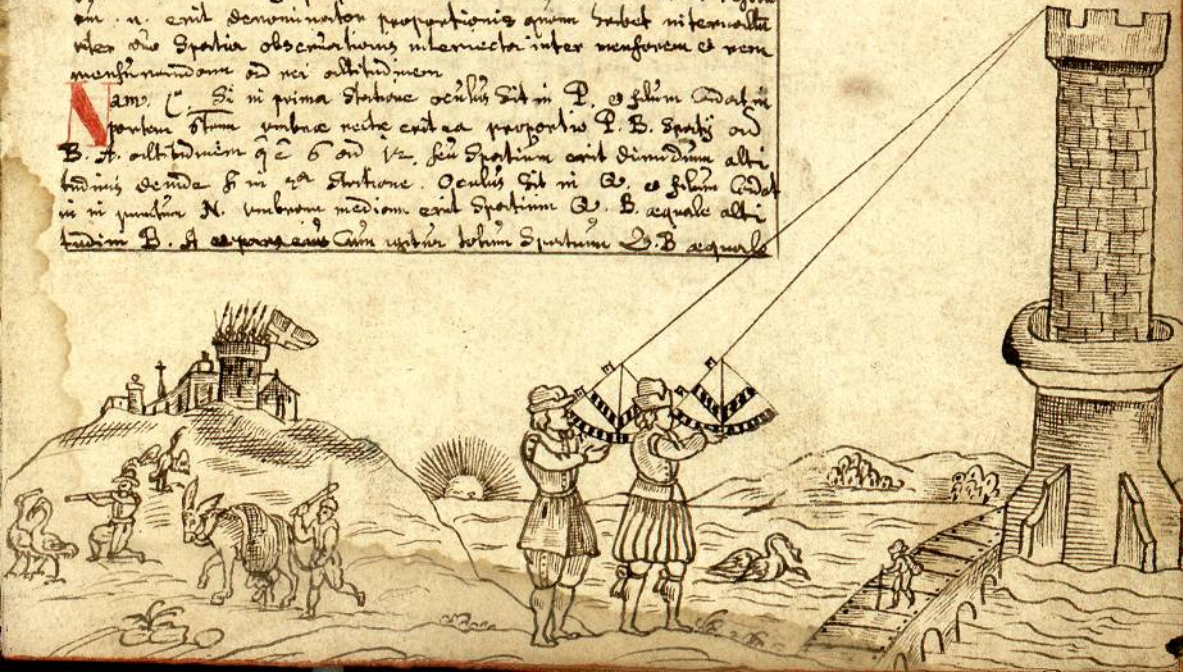 em. n. erit denominator proportionis quam habet intervallū
inter duo spatia observationis interiecta inter mensorem et rem
mensurandam ad rei altitudinem
Nam. Si in prima statione oculus sit in P. et filum cadat in
partem umbrae rectae erit ea proportio P. B. spatij ad
B. A. altitudinem 6 ad 12. seu spatium erit dimidium alti
tudinis deinde si in 2ª statione. Oculus sit in Q. et filum cadat
in punctum N. umbram mediam erit spatium Q. B. aequale alti
tudini B. A Cum igitur totum spatium Q. B aequale